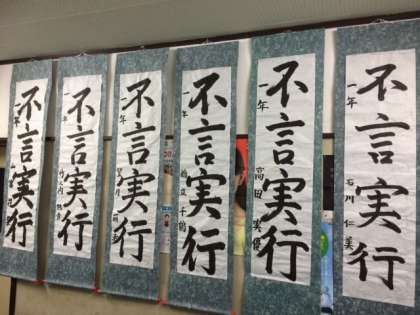 不言実行
一年 石川 仁美
不言実行
一年 高田 実優
不言実行
一年
不言実行
一年
不言実行
一年 竹内
不言実行
一年